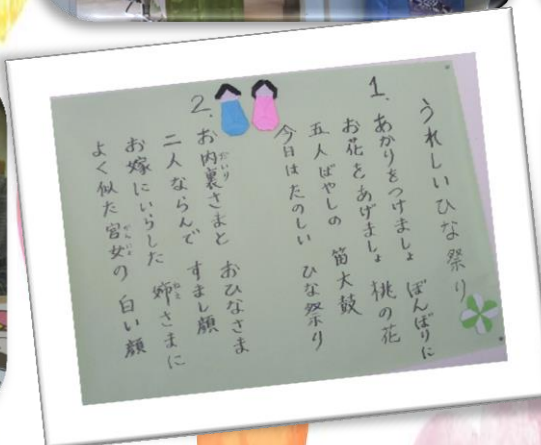 うれしいひな祭り
1. あかりをつけましょ ぼんぼりに
お花をあげましょ 桃の花
五人ばやしの 笛太鼓
今日はたのしい ひな祭り
2. お内裏さまと おひなさま
二人ならんで すまし顔
お嫁にいらした 姉さまに
よく似た官女の 白い顔